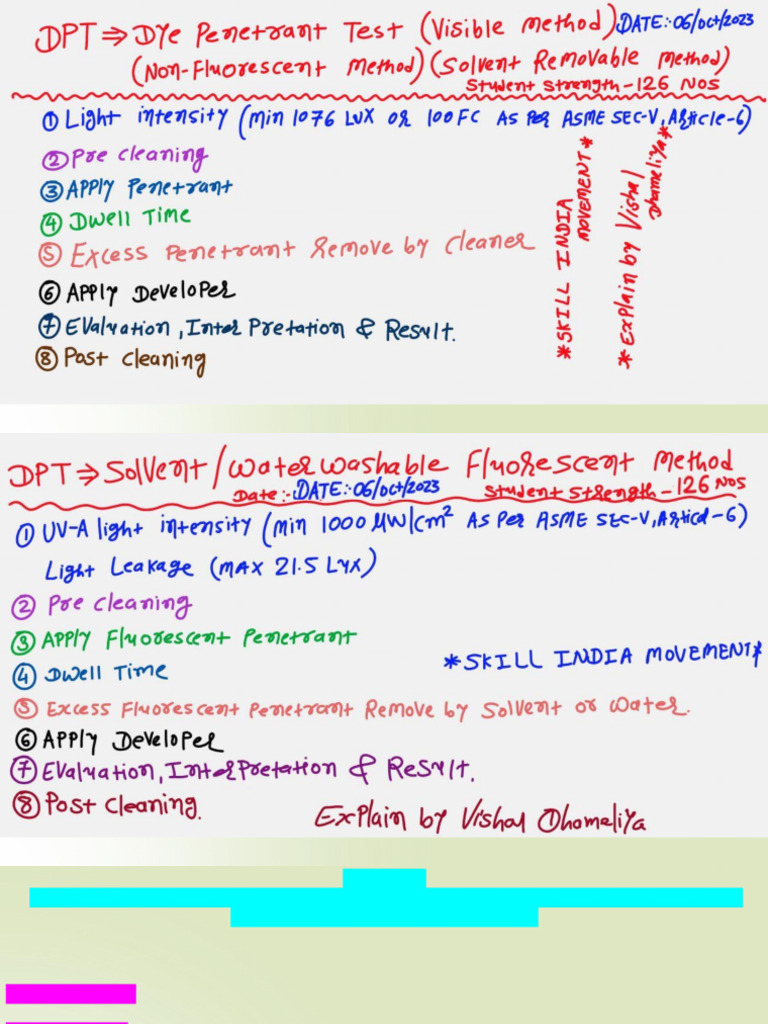 DPT ⇒ Dye Penetrant Test (Visible Method) DATE:-06/Oct/2023
(Non-Fluorescent Method) (Solvent Removable Method)
Student Strength - 126 Nos
① Light intensity (Min 1076 Lux or 100 FC As Per ASME SEC-V, Article-6)
② Pre Cleaning
③ APPly Penetrant
④ Dwell Time
⑤ Excess Penetrant Remove by Cleaner
⑥ APPly Developer
⑦ Evaluation, InterPretation & Result.
⑧ Post Cleaning
*SKILL INDIA
MOVEMENT*
*Explain by Vishal
Dhameliya*
DPT ⇒ Solvent/Water washable Fluorescent Method
Date:- DATE:-06/Oct/2023 Student Strength - 126 Nos
① UV-A light intensity (Min 1000 μW/Cm² As Per ASME SEC-V, Articd-6)
Light Leakage (MAX 21.5 Lux)
② Pre Cleaning
③ APPly Fluorescent Penetrant
④ Dwell Time
⑤ Excess Fluorescent Penetrant Remove by Solvent or Water.
⑥ APPly Developer
⑦ Evaluation, InterPretation & Result.
⑧ Post Cleaning.
*SKILL INDIA MOVEMENT*
Explain by Vishal Dhameliya